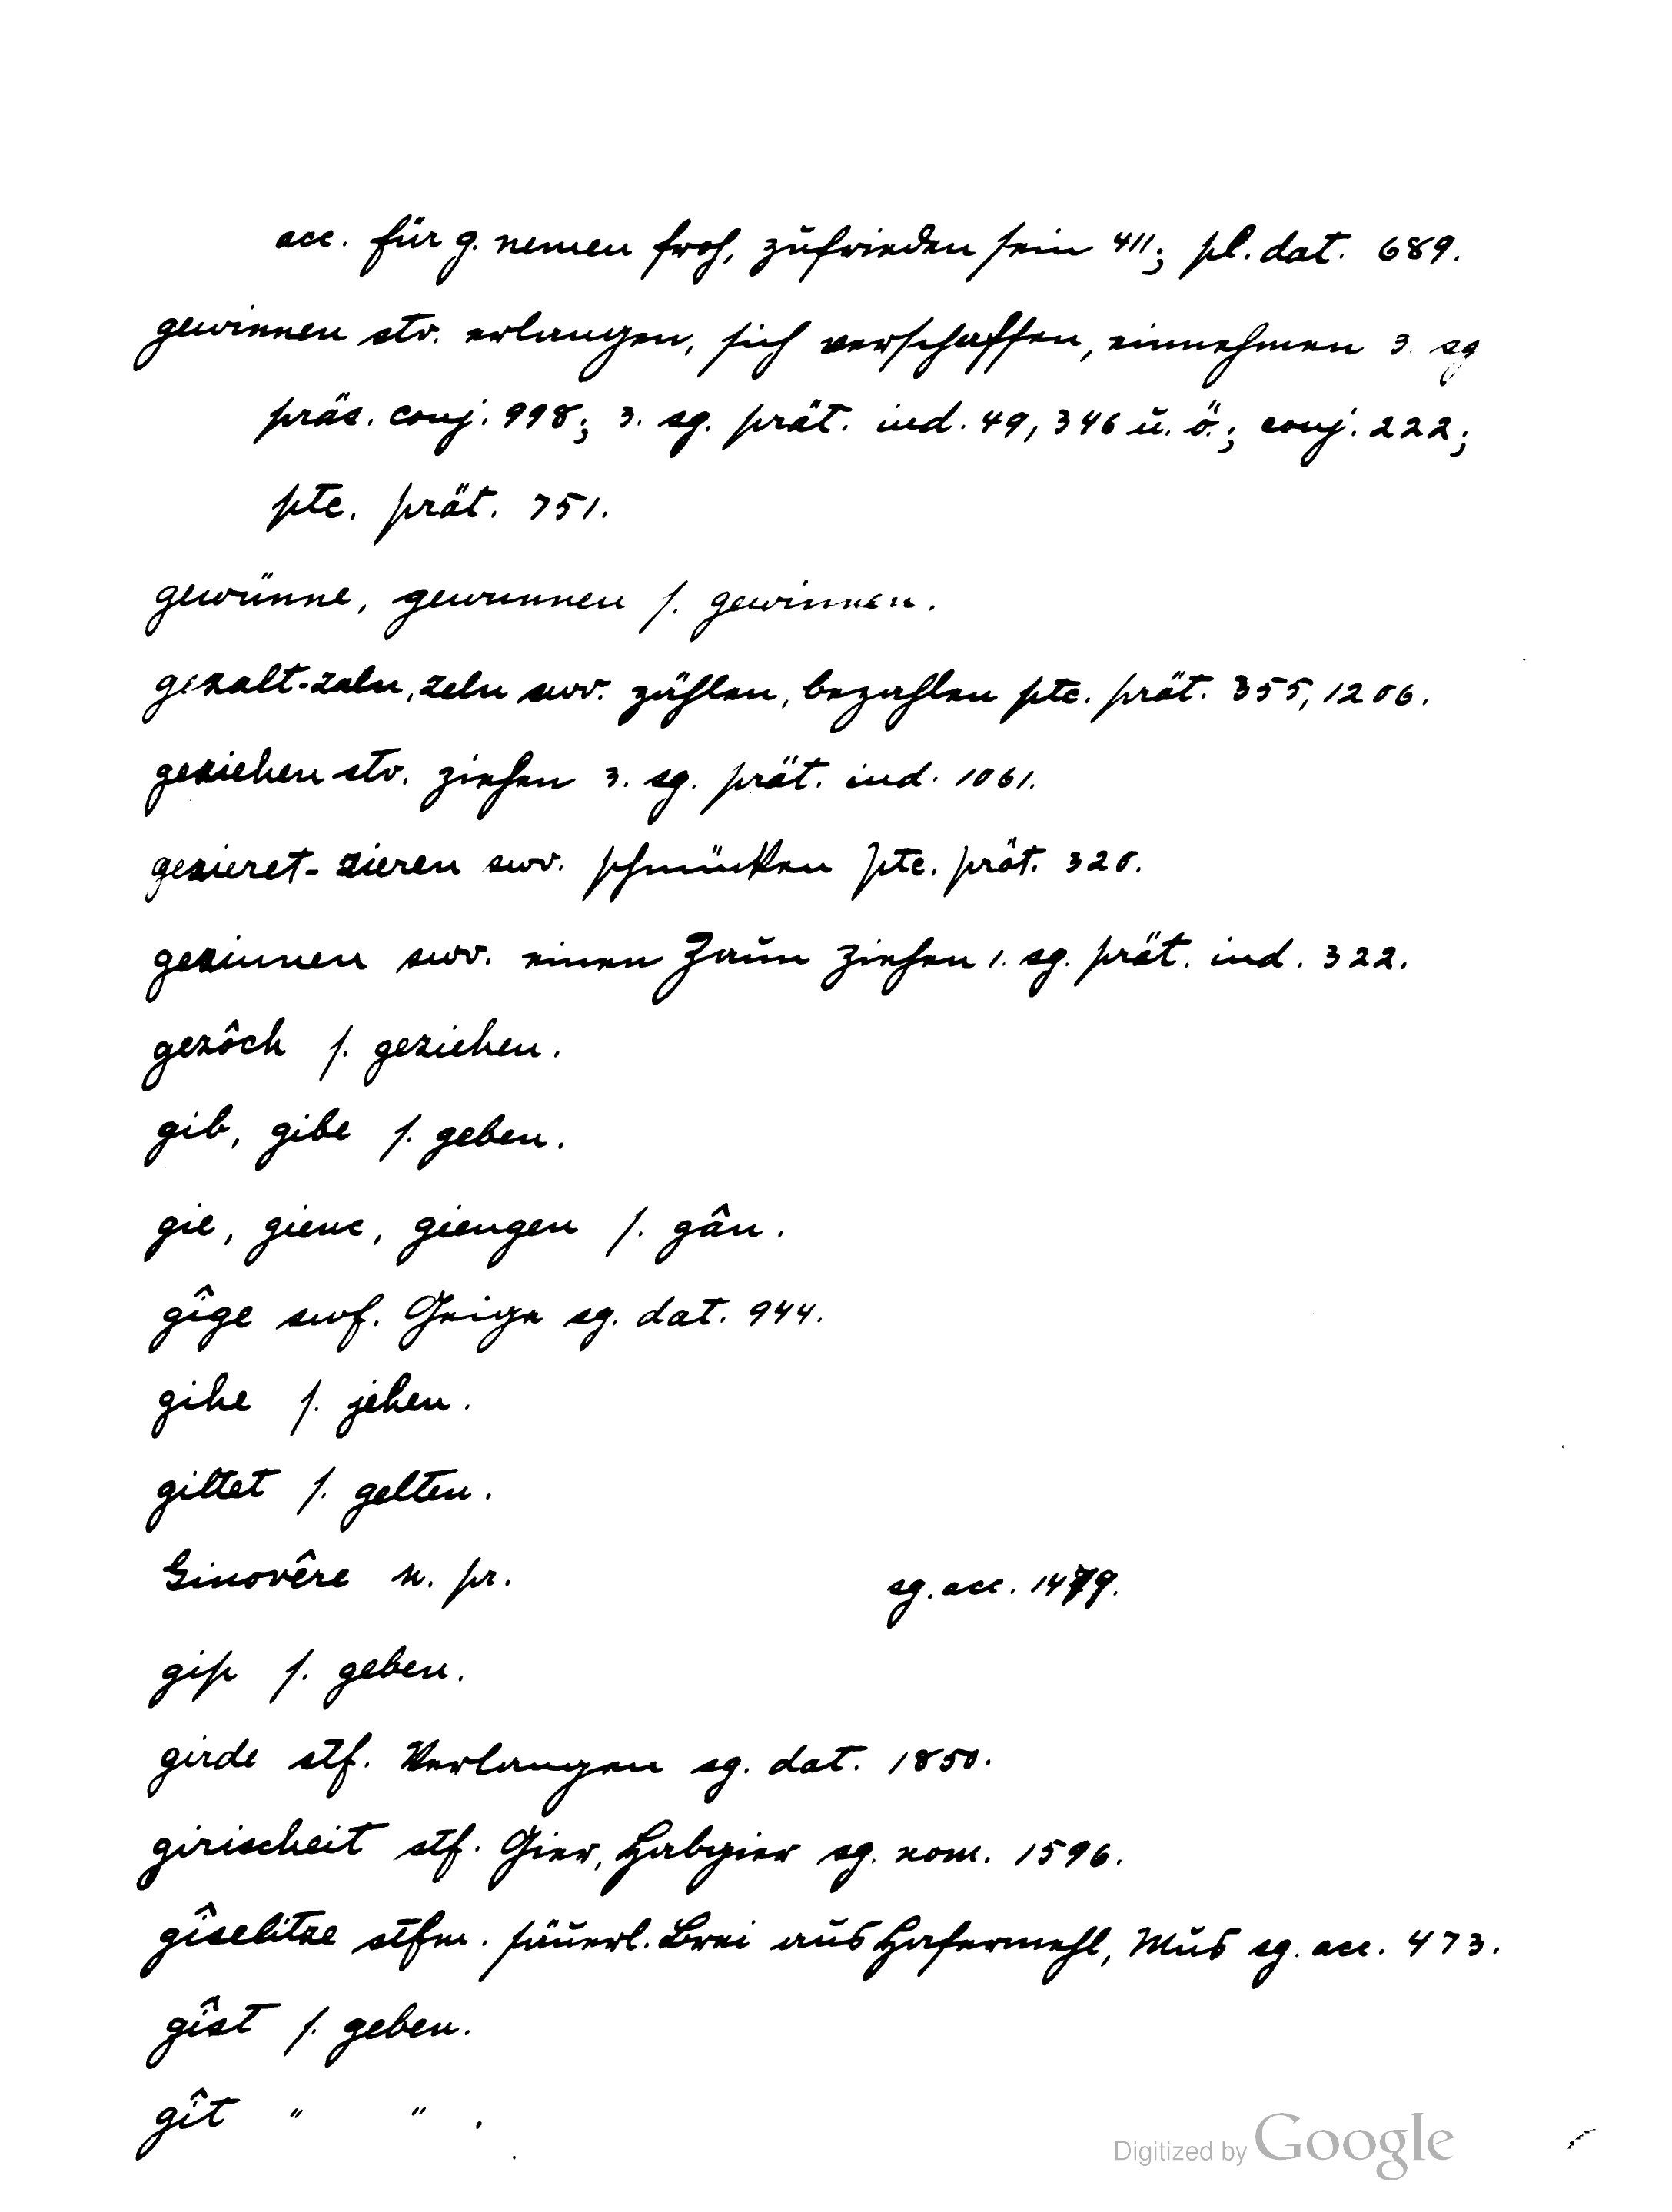 acc. für g. nemen froh, zufrieden sein 411; pl. dat. 689.
gewinnen stv. erlangen, sich verschaffen, einnehmen 3. sg
präs. conj. 998; 3. sg. prät. ind. 49, 346 u. ö.; conj. 222;
ptc. prät. 751.
gewünne, gewunnen s. gewinnen.
gezalt-zaln, zeln swv. zählen, bezahlen ptc. prät. 355, 1206.
geziehen stv. ziehen 3. sg. prät. ind. 1061.
gezieret-zieren swv. schmücken ptc. prät. 320.
gezinnen swv. einen Zaun ziehen 1. sg. prät. ind. 322.
gezôch s. geziehen.
gib, gibe s. geben.
gie, gienc, giengen s. gân.
gîge swf. Geige sg. dat. 944.
gihe s. jehen.
giltet s. gelten.
Ginovêre n. pr. sg. acc. 1479.
gip s. geben.
girde stf. Verlangen sg. dat. 1850.
girischeit stf. Gier, Habgier sg. nom. 1596.
gîselitze stfm. säuerl. Brei aus Hafermehl, Mus sg. acc. 473.
gîst s. geben.
gît " " .
Digitized by Google